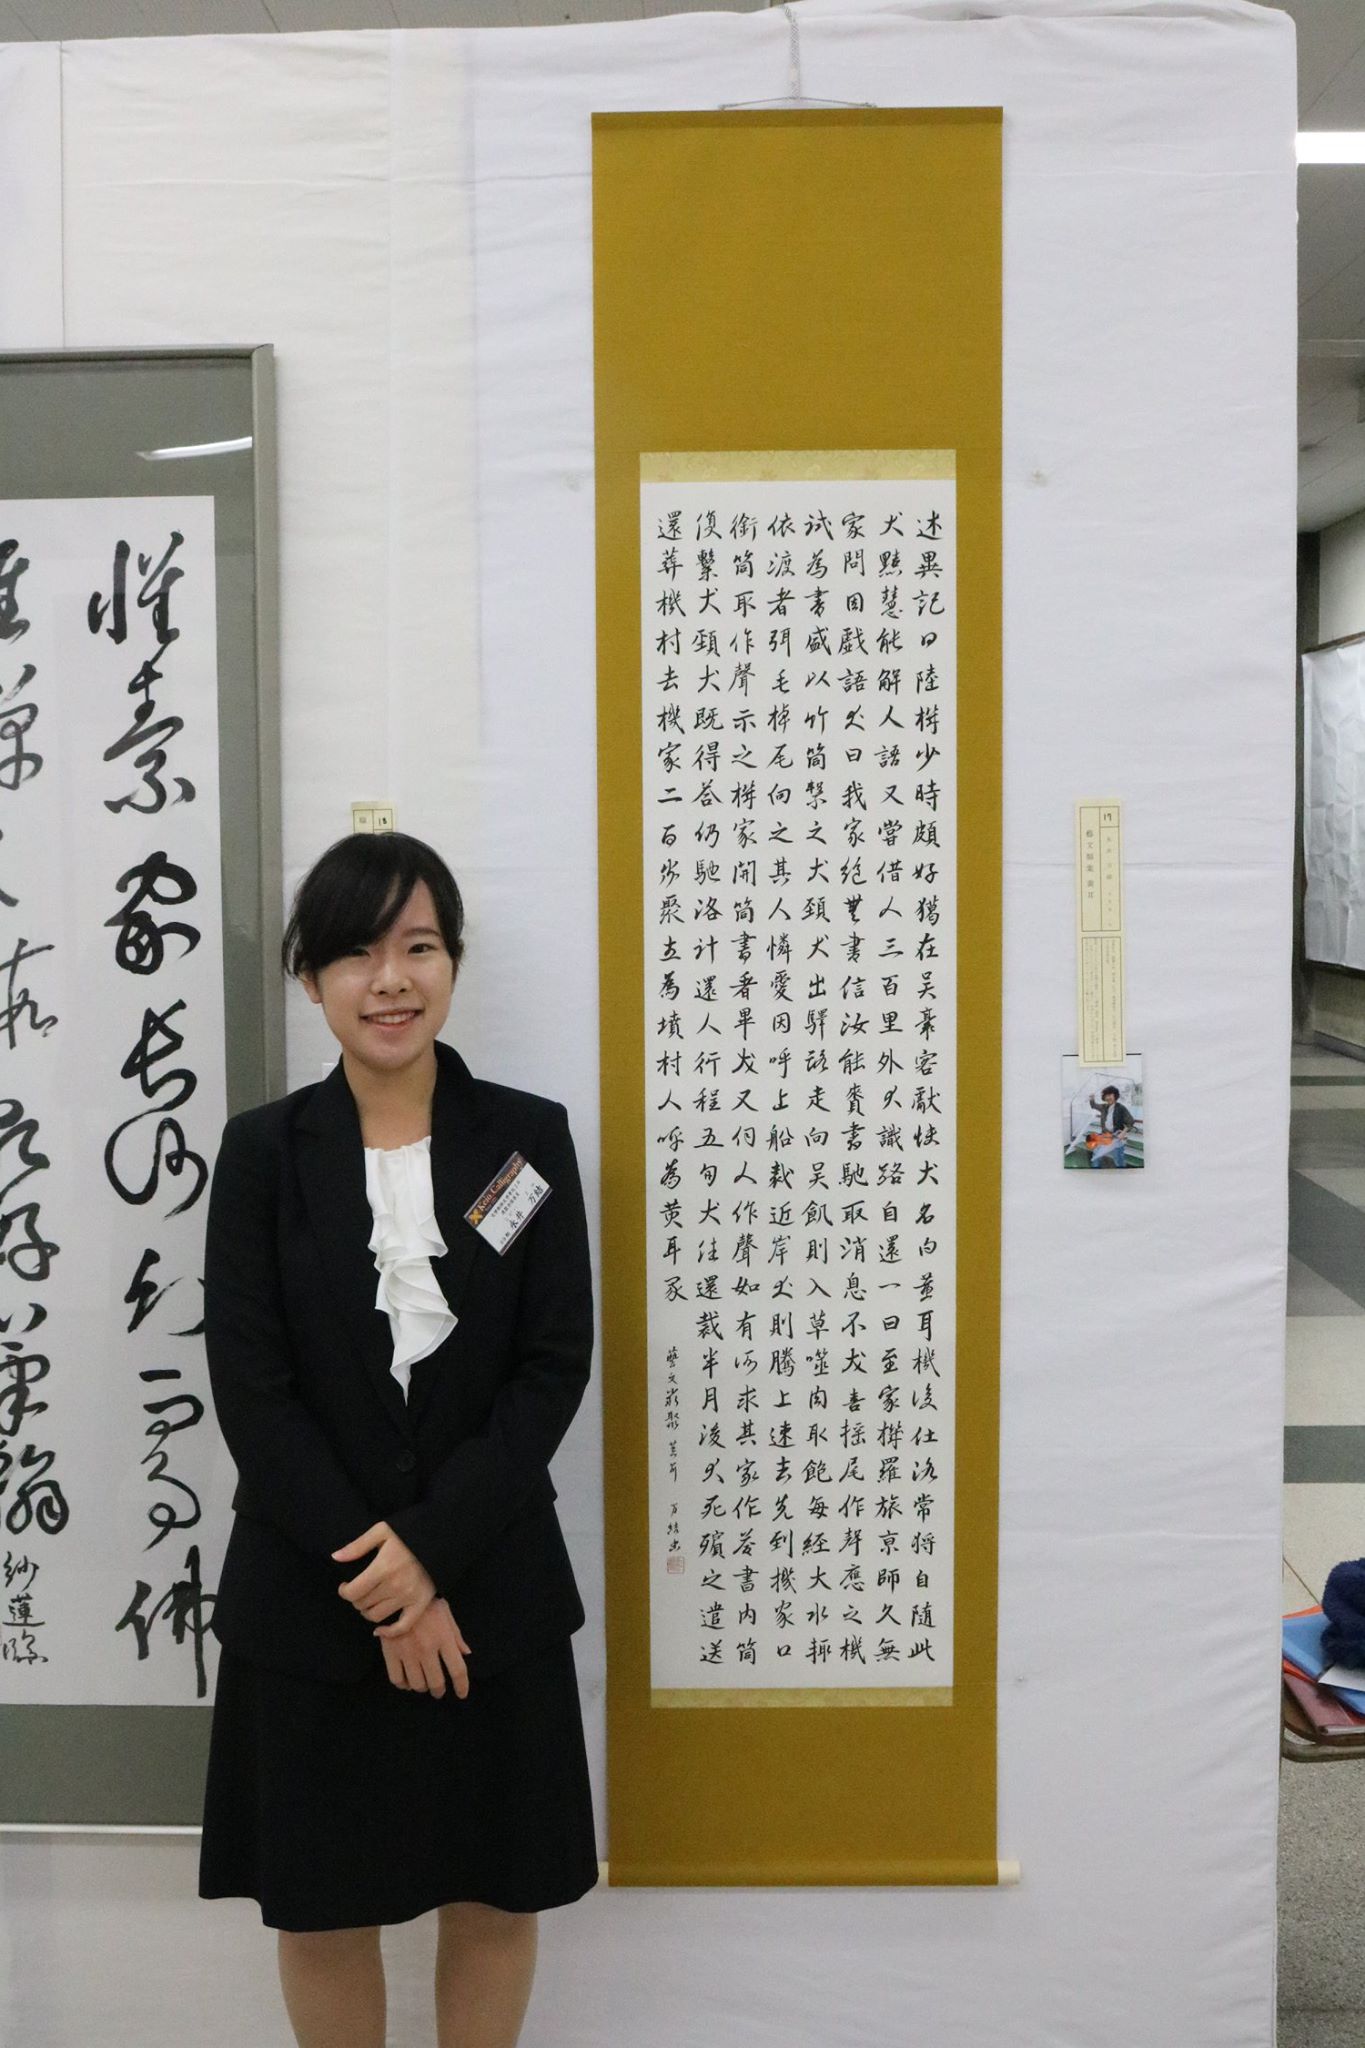 述異記曰陸機少時頗好獵在吳豪客獻快犬名曰黃耳機後仕洛常將自隨此
犬黠慧能解人語又嘗借人三百里外犬識路自還一日至家機羈旅京師久無
家問因戲語犬曰我家絕無書信汝能賫書馳取消息不犬喜搖尾作聲應之機
試為書盛以竹筒繫之犬頸犬出驛路走向吳飢則入草噬肉取飽每經大水輒
依渡者弭毛掉尾向之其人憐愛因呼上船裁近岸犬則騰上速去先到機家口
銜筒取作聲示之機家開筒書看畢犬又伺人作聲如有所求其家作荅書內筒
復繫犬頸犬既得荅仍馳洛計還人行程五旬犬往還裁半月後犬死殯之遣送
還葬機村去機家二百步聚土為墳村人呼為黃耳冢
藝文類聚 黃耳 万結書
17
藝文類聚 黃耳
18
Keio Calligraphy
永井 万結
懷素家長沙幼而事佛
紗蓮臨